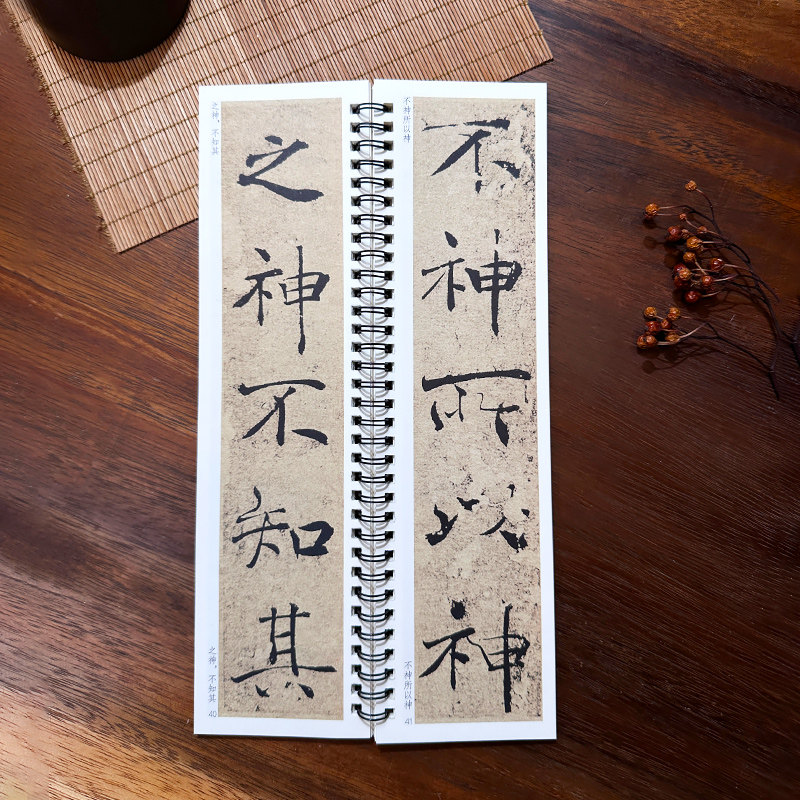 之神，不知其
之神不知其
之神，不知其
40
不神所以神
不神所以神
不神所以神
41